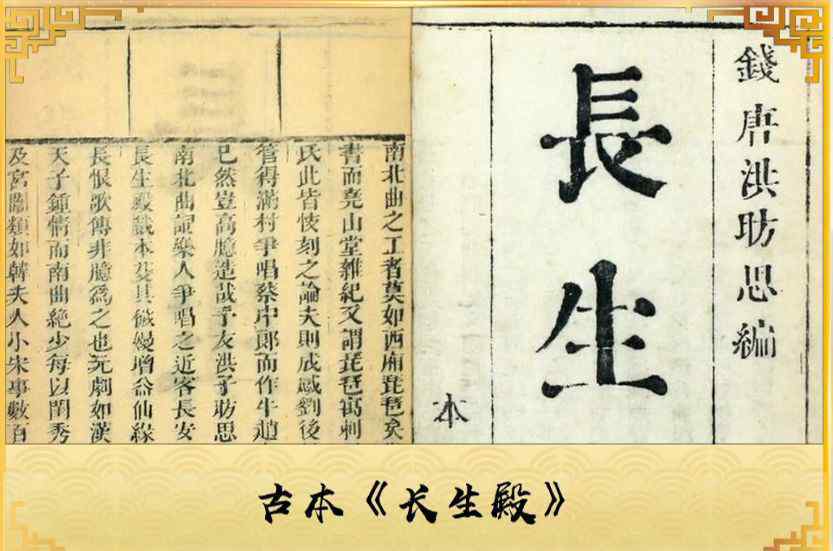 錢唐洪昉思編
長生
本
南北曲之工者莫如西廂琵琶矣
書而堯山堂雜紀又謂琵琶寓刺
氏此皆忮刻之論夫則成感劉後
管得滿村爭唱蔡中郎而作牛趙
已然豈高臆造哉予友洪子昉思
南北曲詞樂人爭唱之近客長安
長生殿截本芟其穢嫚增益仙緣
長恨歌傳非臆為之也元劇如漢
天子鍾情而南曲絶少每以閨秀
及宮闈類如韓夫人小宋事數百
古本《长生殿》